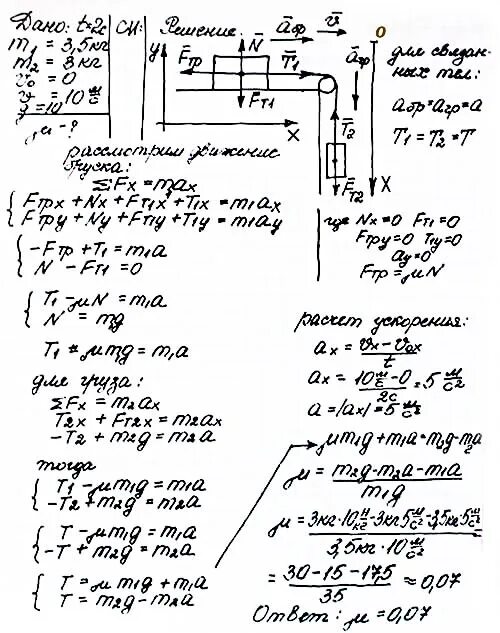 Дано: t=2с
m₁ = 3,5кг
m₂ = 3кг
v₀ = 0
v = 10 м/с
g = 10
μ - ?
СИ:
Решение:
y
F̄тр
N̄
T̄₁
F̄т1
x
āбр
v̄
āгр
T̄₂
F̄т2
O
X
для связан-
ных тел:
aбр=aгр=a
T₁=T₂=T
рассмотрим движение
бруска:
ΣFx = max
Fтрx + Nx + Fт1x + T1x = m₁ax
Fтрy + Ny + Fт1y + T1y = m₁ay
где Nx=0 Fт1=0
Fтрy=0 T1y=0
ay=0
Fтр=μN
-Fтр+T₁=m₁a
N - Fт1=0
T₁-μN = m₁a
N = m₁g
T₁- μm₁g = m₁a
для груза:
ΣFx = m₂ax
T₂x + Fт2x = m₂ax
-T₂ + m₂g = m₂a
тогда
T₁ -μm₁g = m₁a
-T₂ +m₂g = m₂a
T -μm₁g = m₁a
-T + m₂g = m₂a
T = μm₁g + m₁a
T = m₂g - m₂a
расчет ускорения:
ax = (vx - v₀x)/t
ax = (10 м/с - 0)/2с = 5 м/с²
a = |ax| = 5 м/с²
μm₁g + m₁a = m₂g - m₂a
μ = (m₂g - m₂a - m₁a)/m₁g
μ = (3кг·10 Н/кг - 3кг·5 м/с² - 3,5кг·5 м/с²)/3,5кг·10 м/с²
= (30-15-17,5)/35 ≈ 0,07
Ответ: μ = 0,07